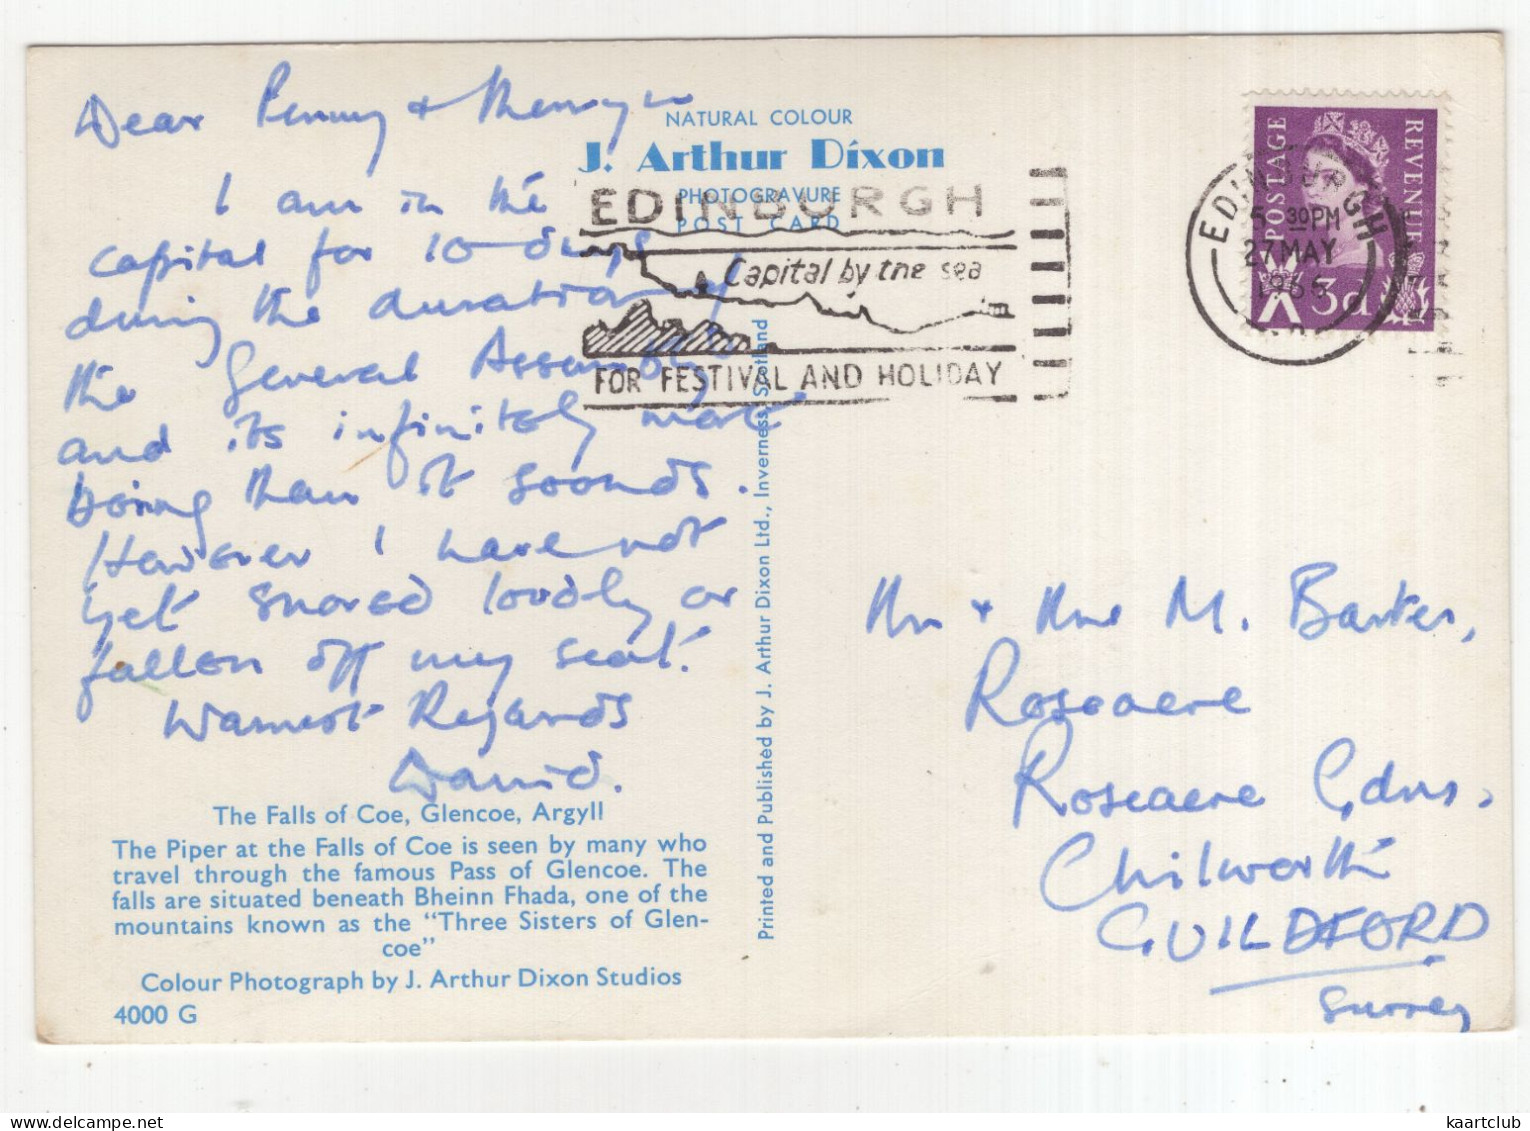 Dear Penny +
I am in the
capital for 10 days
during the duration of
the General Assembly
and its infinitely more
boring than it sounds.
However I have not
yet snored loudly or
fallen off my seat.
Warmest Regards
David.
The Falls of Coe, Glencoe, Argyll
The Piper at the Falls of Coe is seen by many who
travel through the famous Pass of Glencoe. The
falls are situated beneath Bheinn Fhada, one of the
mountains known as the "Three Sisters of Glen-
coe"
Colour Photograph by J. Arthur Dixon Studios
4000 G
NATURAL COLOUR
J. Arthur Dixon
PHOTOGRAVURE
POST CARD
EDINBURGH
Capital by the sea
FOR FESTIVAL AND HOLIDAY
Printed and Published by J. Arthur Dixon Ltd., Inverness, Scotland
POSTAGE
REVENUE
3d
EDINBURGH
5 30PM
27 MAY
Mr + Mrs M. Barker,
Roseacre
Roseacre Gdns,
Chilworth
GUILDFORD
Surrey
kaartclub